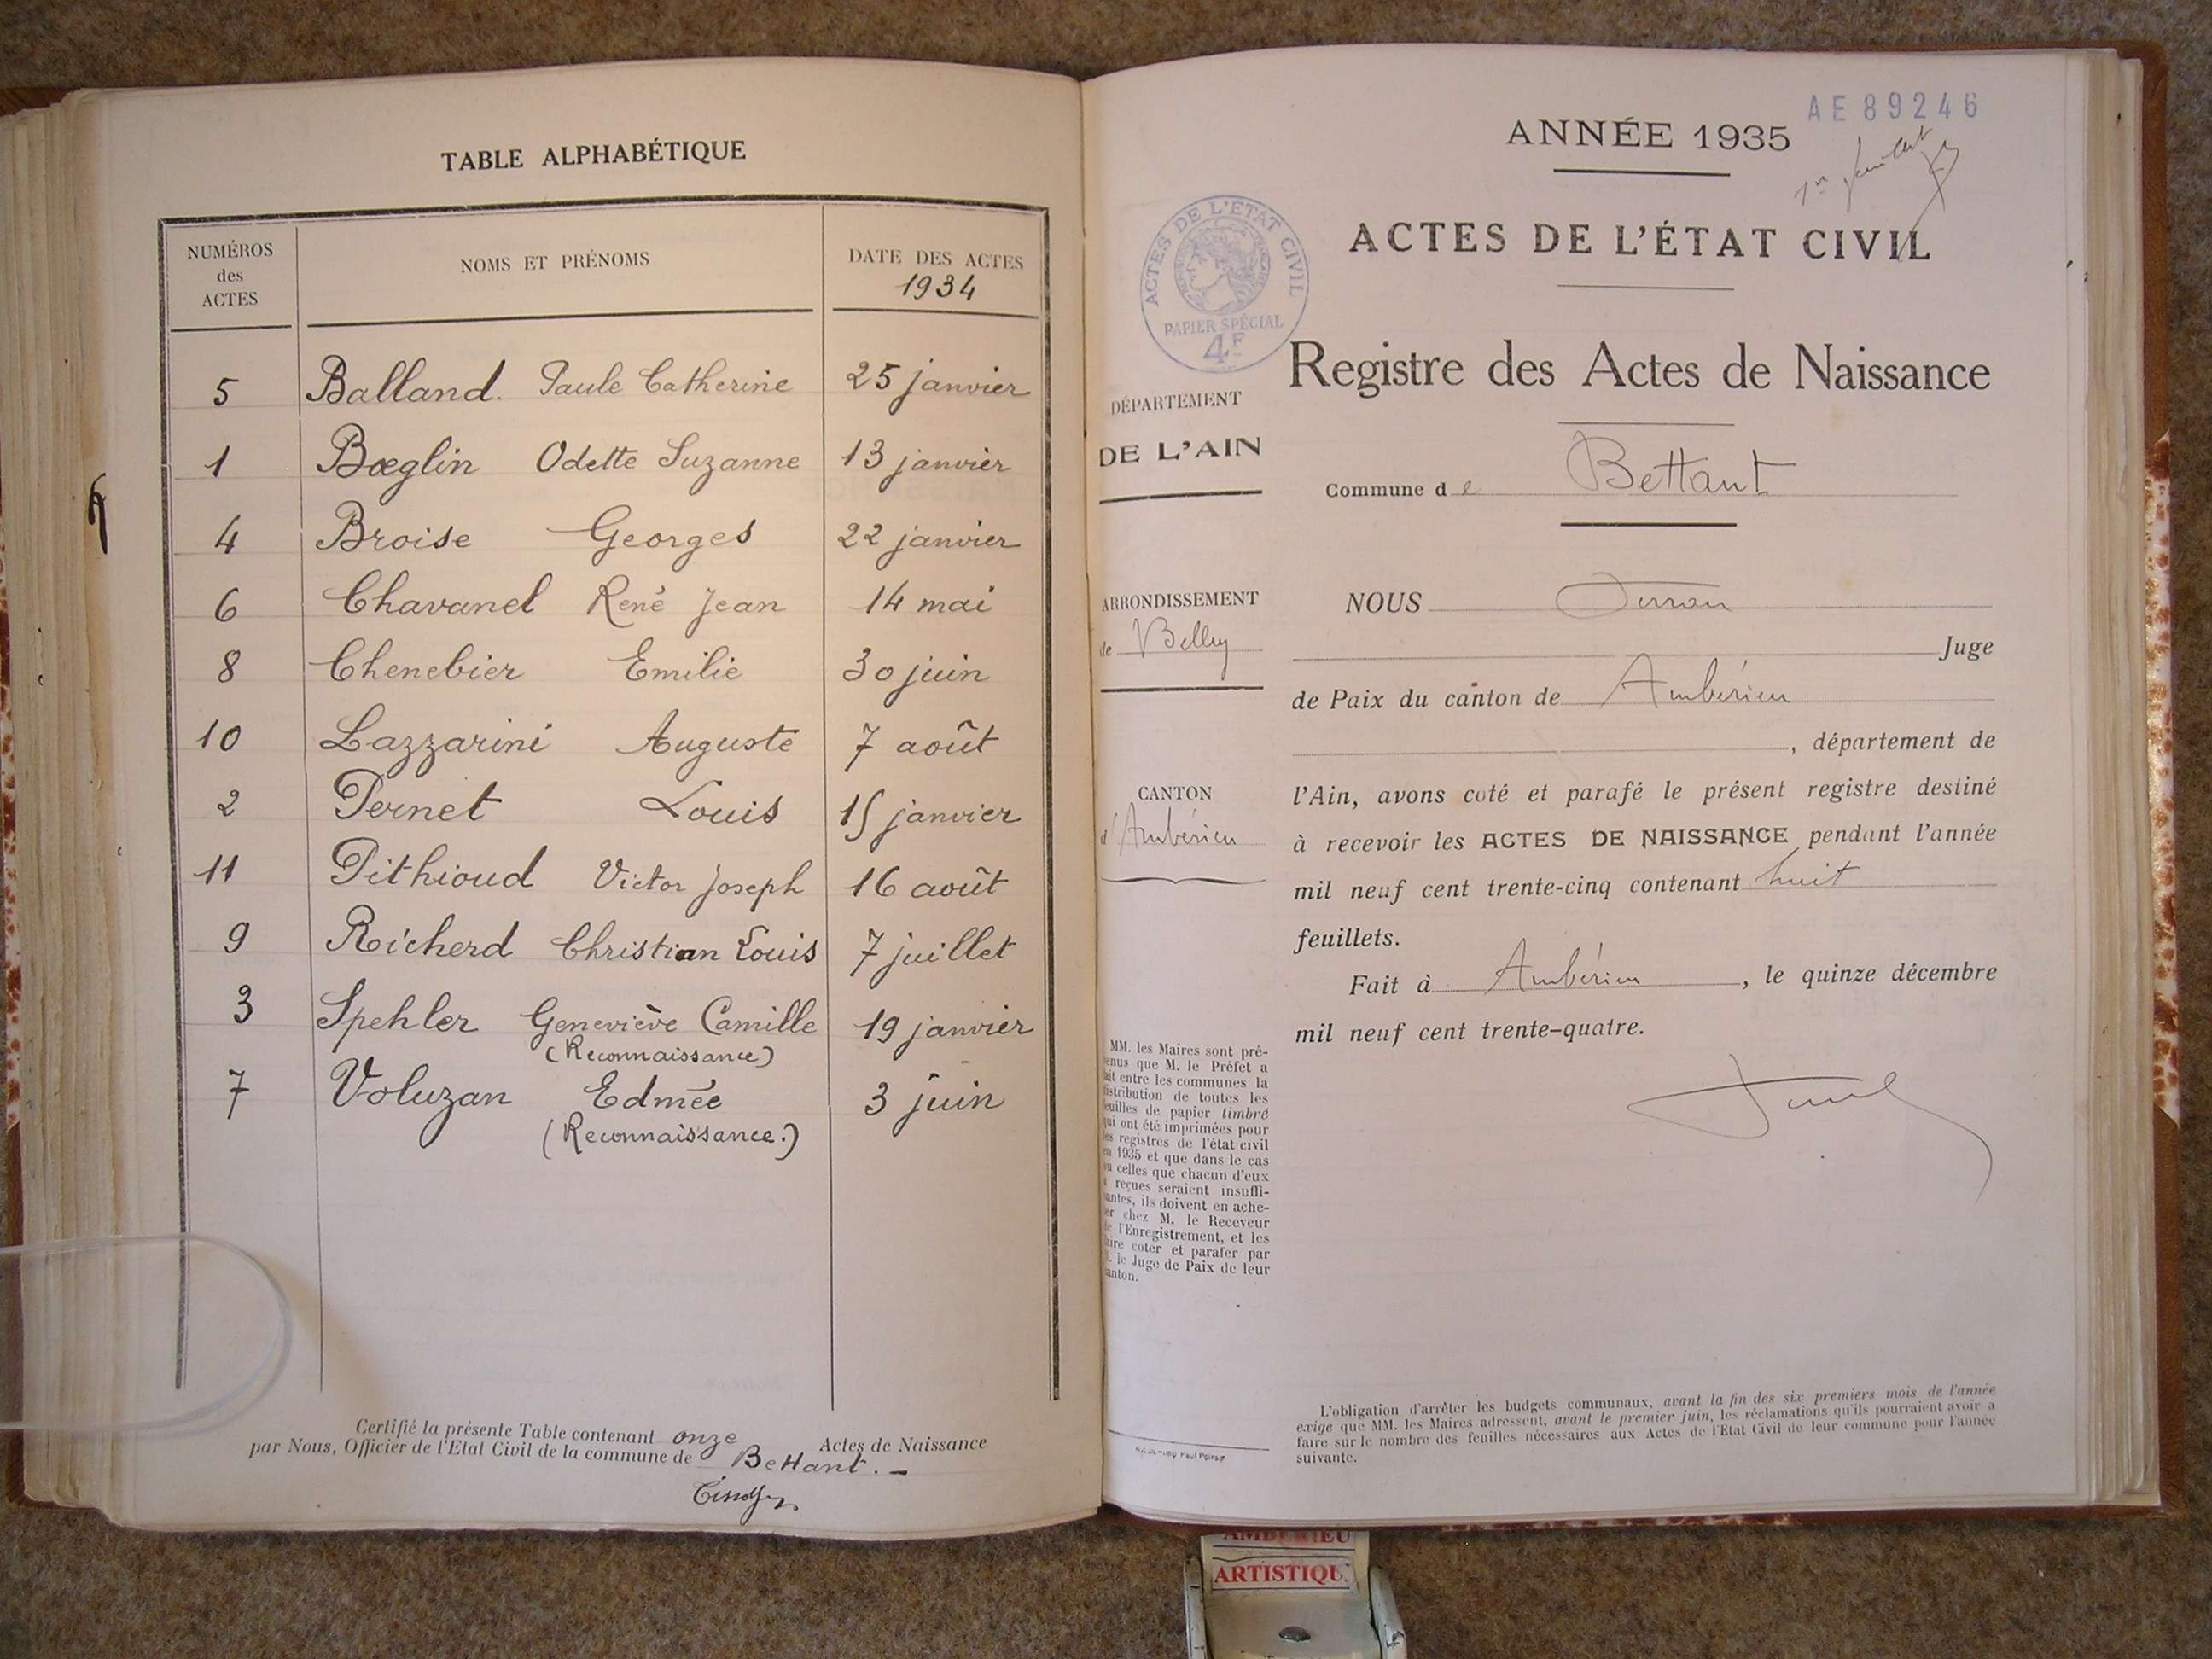 TABLE ALPHABÉTIQUE
NUMÉROS des ACTES
NOMS ET PRÉNOMS
DATE DES ACTES
1934
5 Balland. Paule Catherine 25 janvier
1 Bœglin Odette Suzanne 13 janvier
4 Broise Georges 22 janvier
6 Chavanel René Jean 14 mai
8 Chenebier Emilie 30 juin
10 Lazzarini Auguste 7 août
2 Pernet Louis 15 janvier
11 Pithioud Victor Joseph 16 août
9 Richerd Christian Louis 7 juillet
3 Spehler Geneviève Camille 19 janvier
(Reconnaissance)
7 Voluzan Edmée 3 juin
(Reconnaissance.)
Certifié la présente Table contenant onze Actes de Naissance
par Nous, Officier de l'Etat Civil de la commune de Bettant. -
AE 89246
ANNÉE 1935
1er feuillet
ACTES DE L'ÉTAT CIVIL
ACTES DE L'ETAT CIVIL
PAPIER SPÉCIAL
4F
Registre des Actes de Naissance
DÉPARTEMENT
DE L'AIN
Commune de Bettant
ARRONDISSEMENT
de Belley
NOUS
Juge
de Paix du canton de Ambérieu
, département de
CANTON
d'Ambérieu
l'Ain, avons coté et parafé le présent registre destiné
à recevoir les ACTES DE NAISSANCE pendant l'année
mil neuf cent trente-cinq contenant huit
feuillets.
Fait à Ambérieu, le quinze décembre
mil neuf cent trente-quatre.
MM. les Maires sont pré-
venus que M. le Préfet a
fait entre les communes la
distribution de toutes les
feuilles de papier timbré
qui ont été imprimées pour
les registres de l'état civil
en 1935 et que dans le cas
où celles que chacun d'eux
a reçues seraient insuffi-
santes, ils doivent en ache-
ter chez M. le Receveur
de l'Enregistrement, et les
faire coter et parafer par
M. le Juge de Paix de leur
canton.
L'obligation d'arrêter les budgets communaux, avant la fin des six premiers mois de l'année
exige que MM. les Maires adressent, avant le premier juin, les réclamations qu'ils pourraient avoir à
faire sur le nombre des feuilles nécessaires aux Actes de l'Etat Civil de leur commune pour l'année
suivante.
AMBERIEU
ARTISTIQU